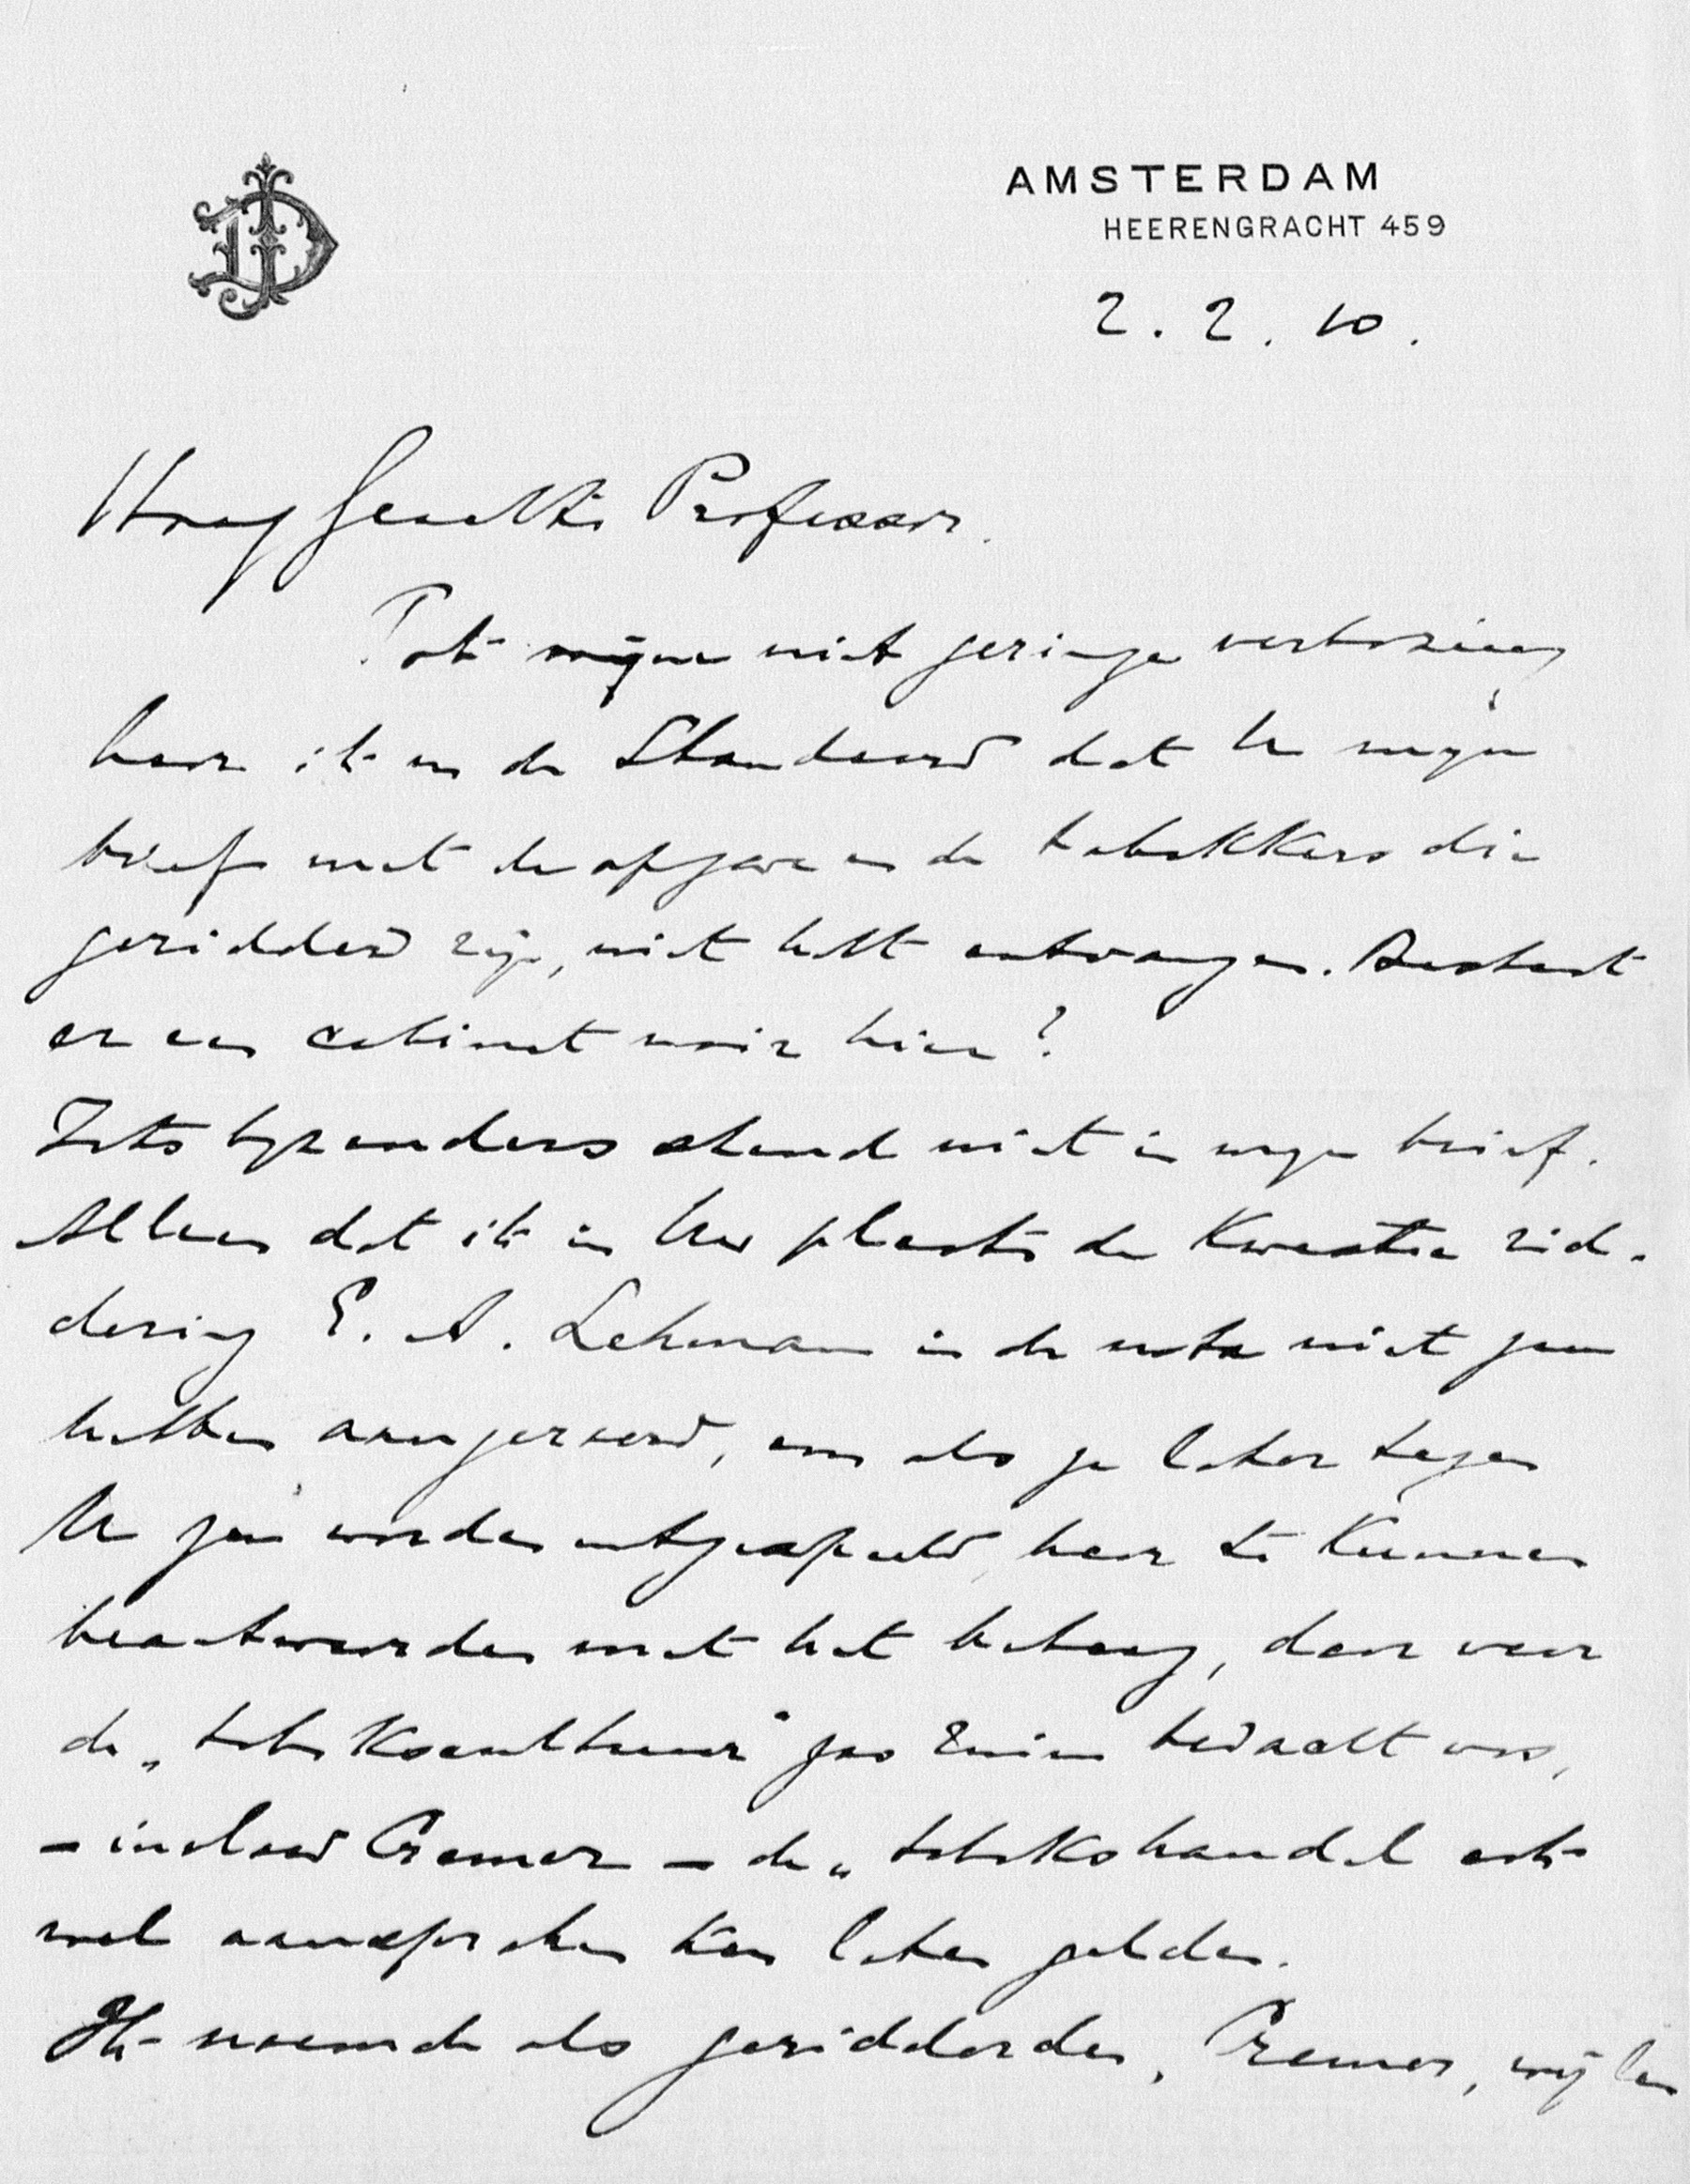 AMSTERDAM
HEERENGRACHT 459
2. 2. 10.
Hoog Geachte Professor.
Tot mijne niet geringe verbazing
hoor ik in de Standaard dat U mijn
brief met de opgave en de tabakkers die
geridderd zijn, niet hebt ontvangen. Bestaat
er een cabinet noir hier?
Iets byzonders stond niet in mijn brief.
Alleen dat ik in Uw plaats de Kwestie rid-
dering E. A. Lehman in de nota niet zou
hebben aangeroerd, om als ze later tegen
U zou worden uitgespeeld, haar te Kunnen
beantwoorden met het betoog, daar waar
de „tabakscultuur" zoo ruim bedacht was,
– incluis Cremer – de „tabakshandel ook
wel aanspraken Kon laten gelden.
Ik noemde als geridderden, Cremer, wijlen